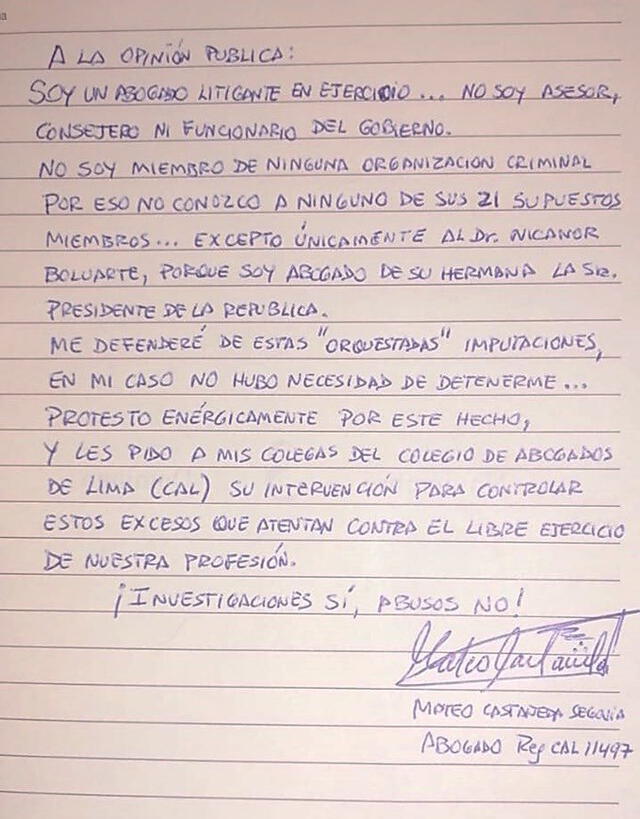 A LA OPINIÓN PUBLICA:
SOY UN ABOGADO LITIGANTE EN EJERCICIO... NO SOY ASESOR,
CONSEJERO NI FUNCIONARIO DEL GOBIERNO.
NO SOY MIEMBRO DE NINGUNA ORGANIZACION CRIMINAL
POR ESO NO CONOZCO A NINGUNO DE SUS 21 SUPUESTOS
MIEMBROS... EXCEPTO ÚNICAMENTE AL Dr. NICANOR
BOLUARTE, PORQUE SOY ABOGADO DE SU HERMANA LA SRA.
PRESIDENTE DE LA REPUBLICA.
ME DEFENDERÉ DE ESTAS "ORQUESTADAS" IMPUTACIONES,
EN MI CASO NO HUBO NECESIDAD DE DETENERME...
PROTESTO ENÉRGICAMENTE POR ESTE HECHO,
Y LES PIDO A MIS COLEGAS DEL COLEGIO DE ABOGADOS
DE LIMA (CAL) SU INTERVENCIÓN PARA CONTROLAR
ESTOS EXCESOS QUE ATENTAN CONTRA EL LIBRE EJERCICIO
DE NUESTRA PROFESIÓN.
¡INVESTIGACIONES SÍ, ABUSOS NO!
MATEO CASTAÑEDA SEGOVIA
ABOGADO Reg CAL 11497